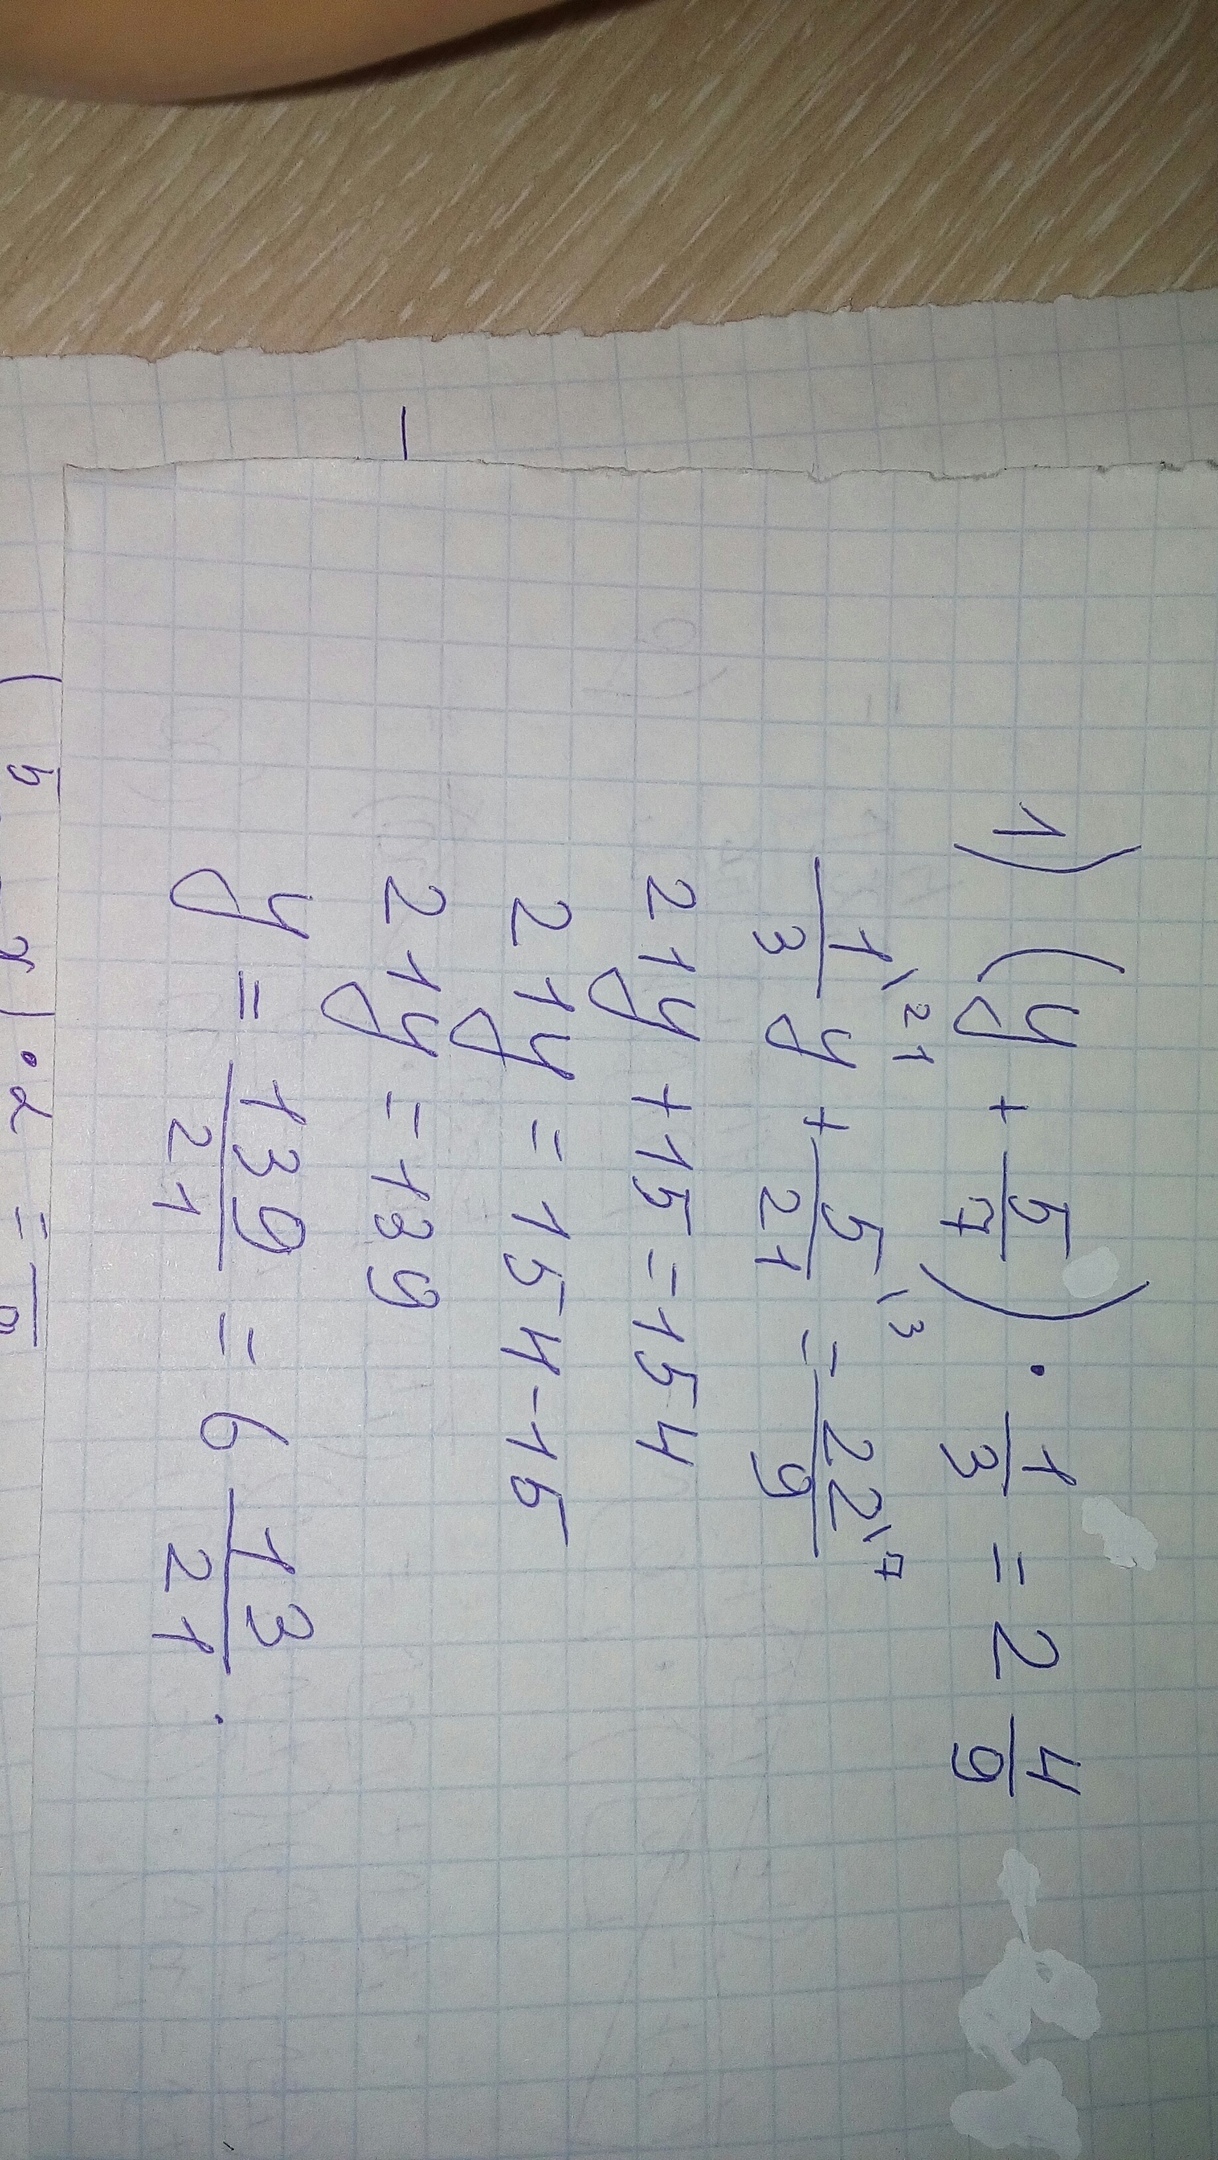 1) (y + 5/7) · 1/3 = 2 4/9
1\21/3 y + 5\3/21 = 22\7/9
21y + 15 = 154
21y = 154 - 15
21y = 139
y = 139/21 = 6 13/21.